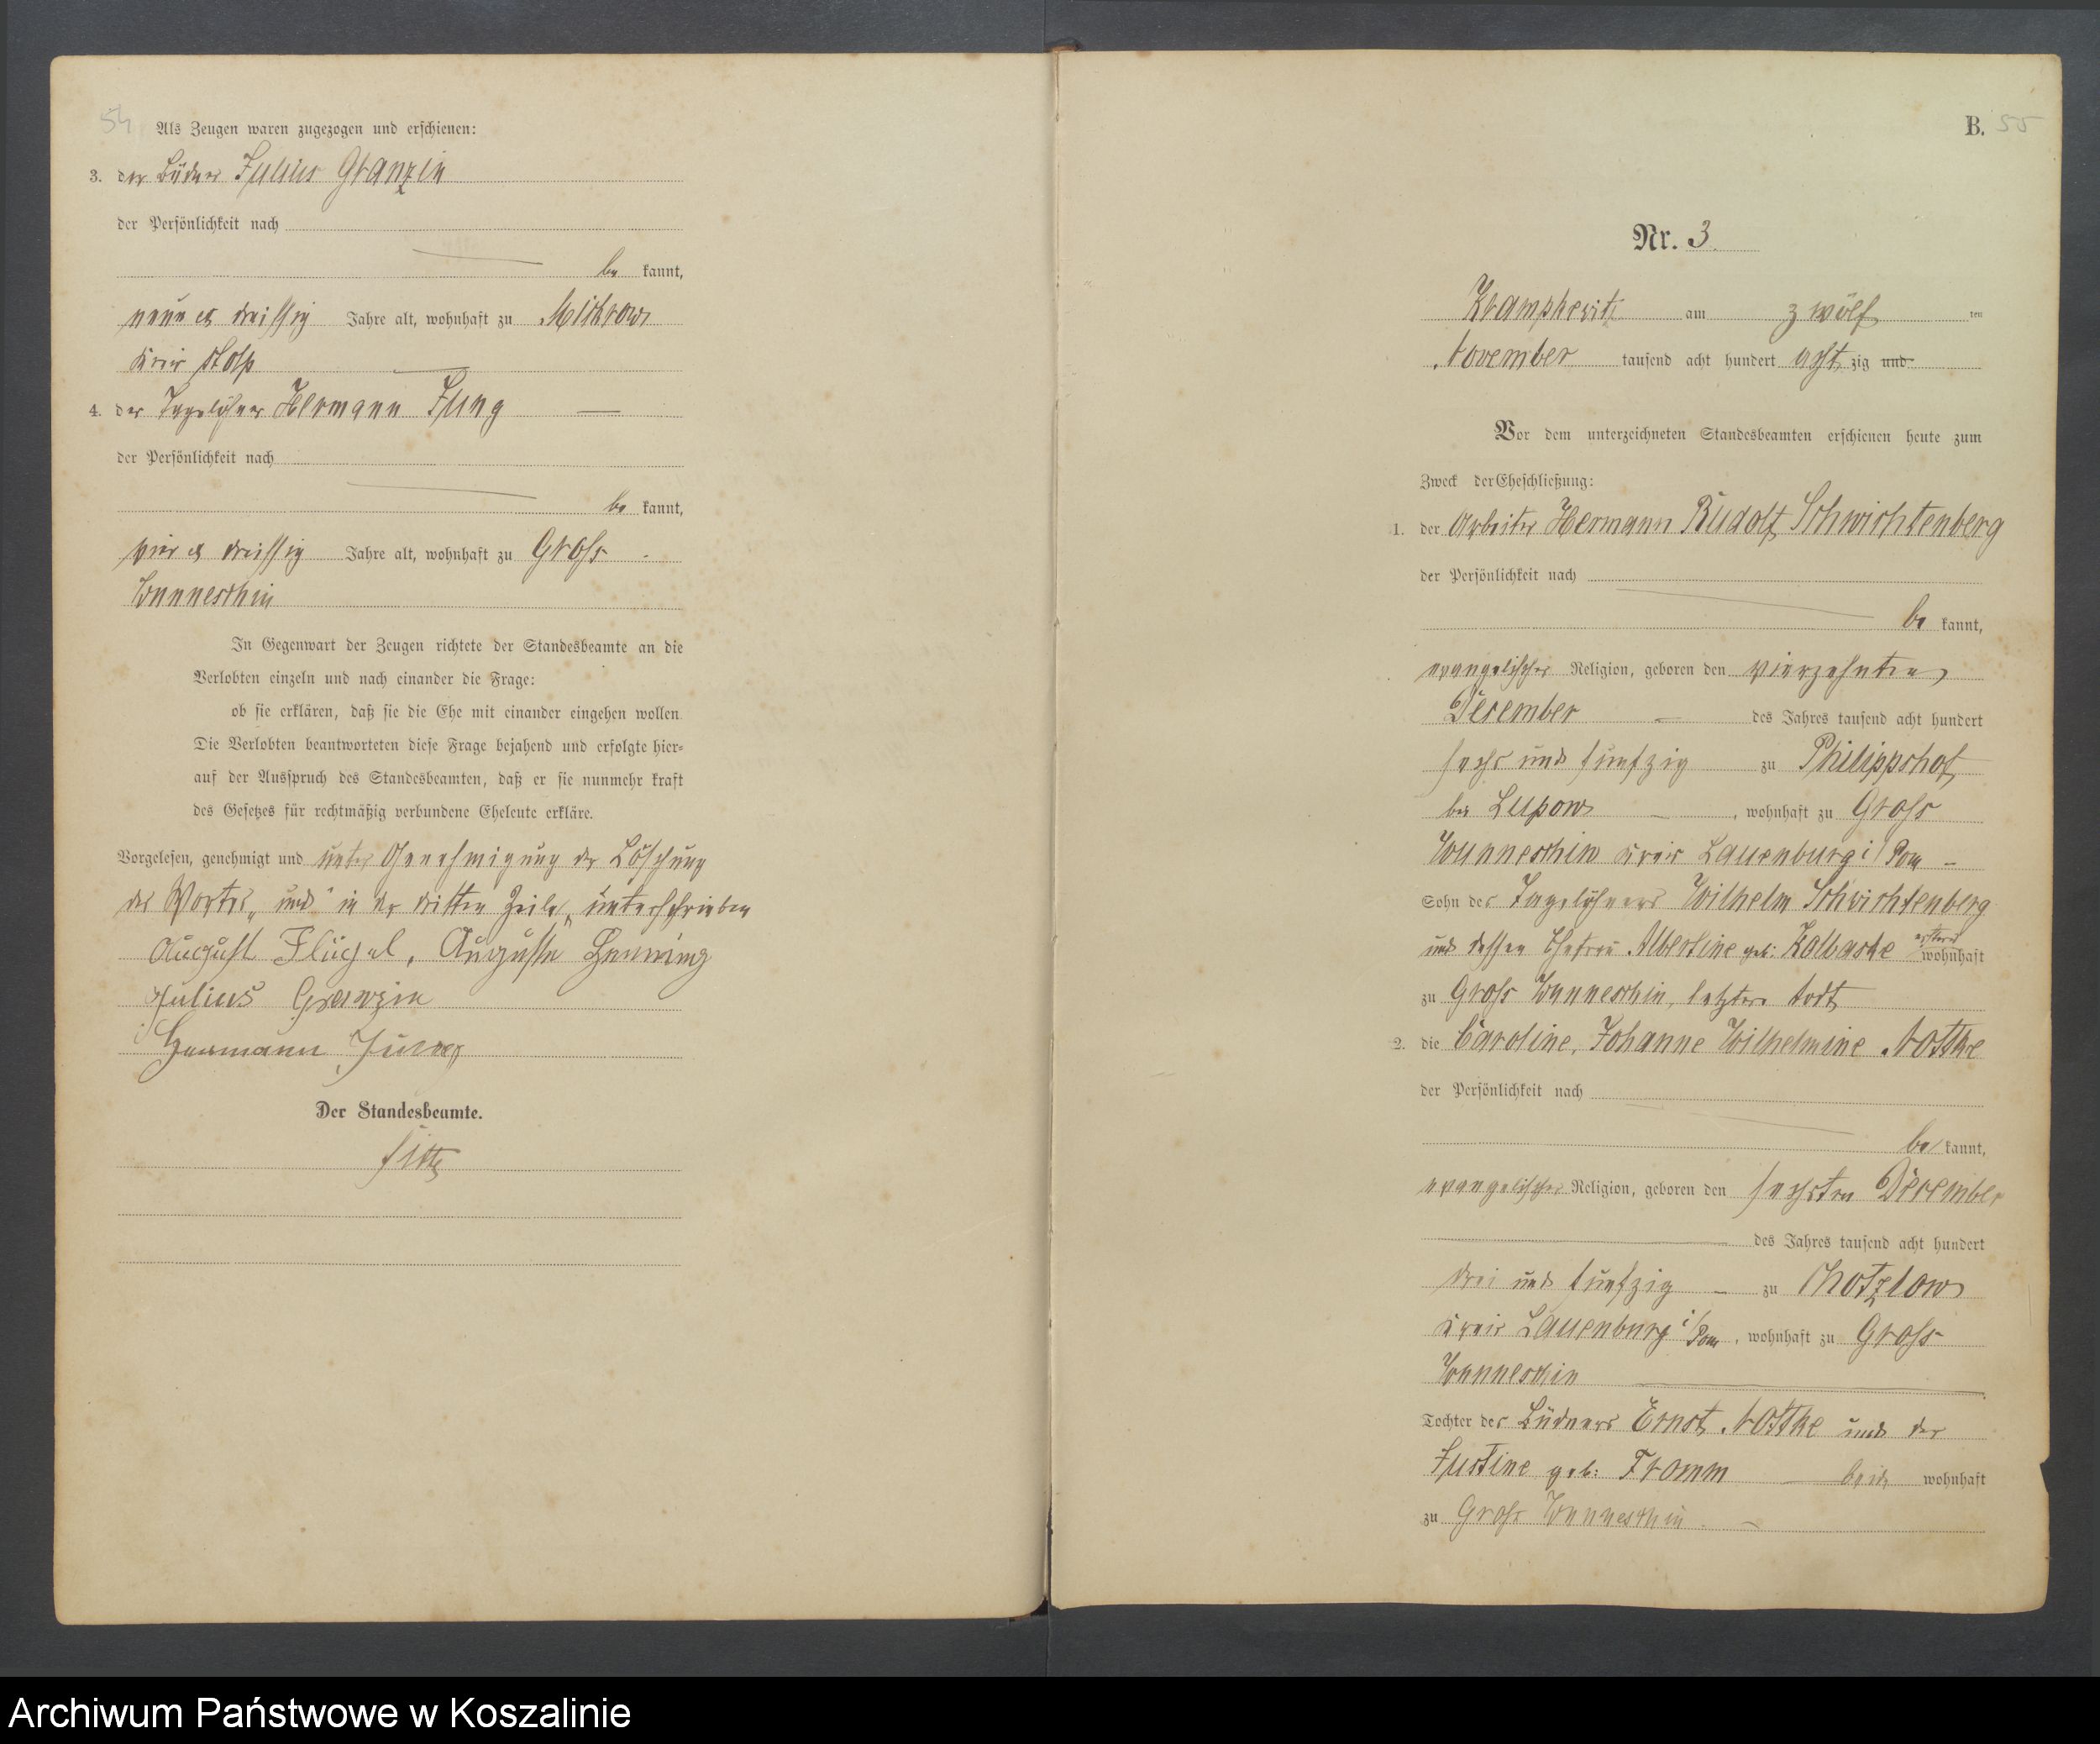 54
Als Zeugen waren zugezogen und erschienen:
3. der Büdner Julius Granzin
der Persönlichkeit nach
be kannt,
neun & dreissig Jahre alt, wohnhaft zu Mickrow
Kreis Stolp
4. der Tagelöhner Hermann Jung
der Persönlichkeit nach
be kannt,
vier & dreissig Jahre alt, wohnhaft zu Gross
Wunneschin
In Gegenwart der Zeugen richtete der Standesbeamte an die
Verlobten einzeln und nach einander die Frage:
ob sie erklären, daß sie die Ehe mit einander eingehen wollen.
Die Verlobten beantworteten diese Frage bejahend und erfolgte hier=
auf der Ausspruch des Standesbeamten, daß er sie nunmehr kraft
des Gesetzes für rechtmäßig verbundene Eheleute erkläre.
Vorgelesen, genehmigt und unter Genehmigung der Löschung
des Wortes „und" in der dritten Zeile, unterschrieben
August Flügel, Auguste Henning
Julius Granzin
Hermann Jung
Der Standesbeamte.
B. 55
Nr. 3.
am zwölf ten
November tausend acht hundert acht zig und
Vor dem unterzeichneten Standesbeamten erschienen heute zum
Zweck der Eheschließung:
1. der Arbeiter Hermann Rudolf Schwichtenberg
der Persönlichkeit nach
be kannt,
evangelischer Religion, geboren den vierzehnten
December des Jahres tausend acht hundert
sechs und funfzig zu Philippshof
bei Lupow, wohnhaft zu Gross
Wunneschin Kreis Lauenburg i/ Pom
Sohn des Tagelöhners Wilhelm Schwichtenberg
und dessen Ehefrau Albertine geb: ersterer wohnhaft
zu Gross Wunneschin, letztere todt
2. die Caroline, Johanne Wilhelmine Nottke
der Persönlichkeit nach
be kannt,
evangelischer Religion, geboren den sechsten December
des Jahres tausend acht hundert
drei und funfzig zu Chotzlow
Kreis Lauenburg i/Pom, wohnhaft zu Gross
Wunneschin
Tochter des Büdners Ernst Nottke und der
Justine geb: Fromm beide wohnhaft
zu Gross Wunneschin
Archiwum Państwowe w Koszalinie